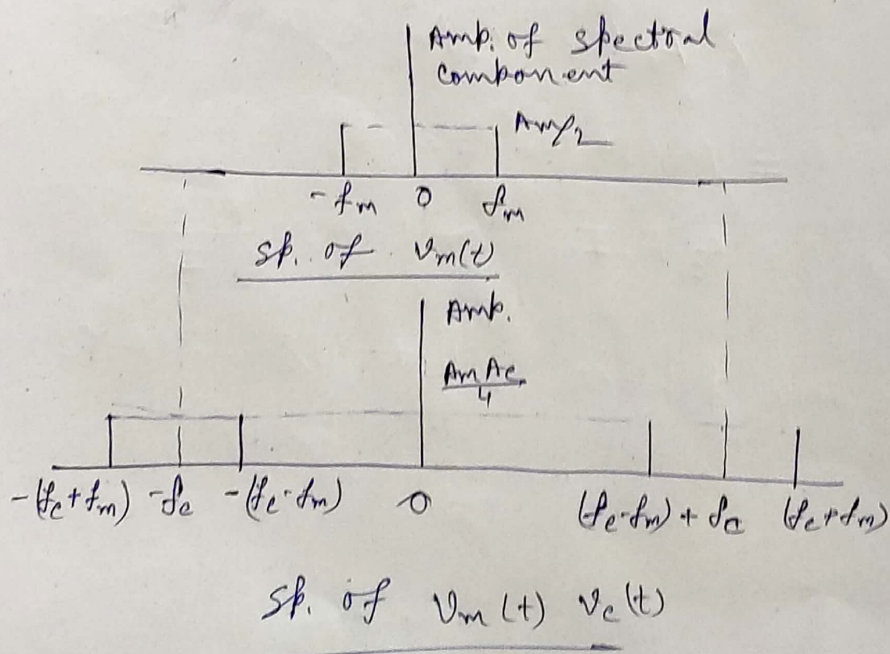 Amp. of spectral
component
Am/2
-fm 0 fm
sp. of vm(t)
Amp.
AmAc
4
-(fc+fm) -fc -(fc-fm) 0 (fc-fm) + fc (fc+fm)
sp. of vm(t) vc(t)